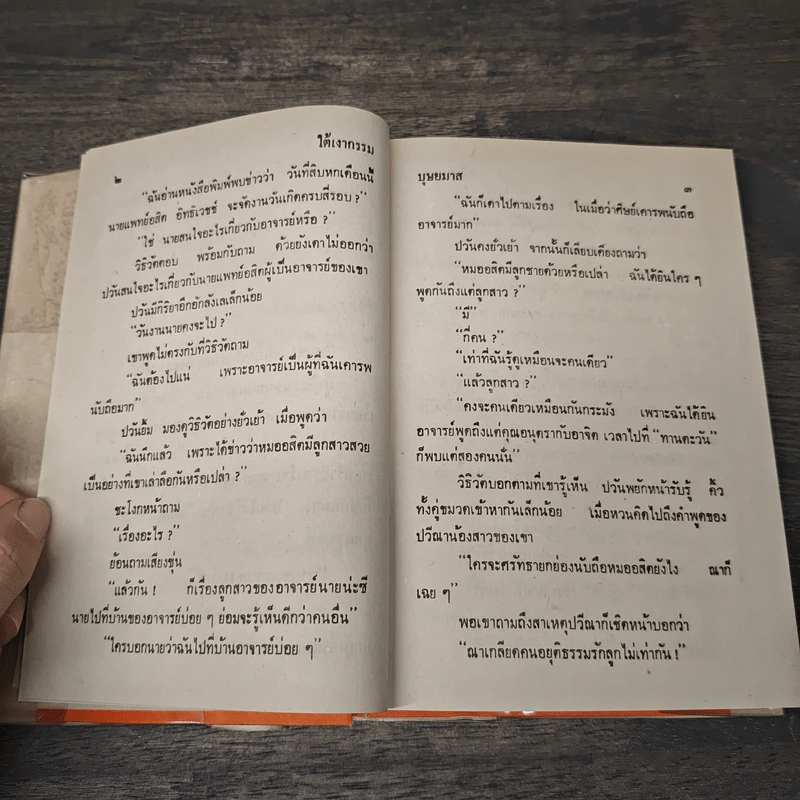 ๒
ใต้เงากรรม
“ฉันอ่านหนังสือพิมพ์พบข่าวว่า วันที่สิบหกเดือนนี้
นายแพทย์อสิต อิทธิเวชช์ จะจัดงานวันเกิดครบสี่รอบ ?”
“ใช่ นายสนใจอะไรเกี่ยวกับอาจารย์หรือ ?”
วิธิวัตตอบ พร้อมกับถาม ด้วยยังเดาไม่ออกว่า
ปวันสนใจอะไรเกี่ยวกับนายแพทย์อสิตผู้เป็นอาจารย์ของเขา
ปวันมีกิริยาอึกอักลังเลเล็กน้อย
“วันงานนายคงจะไป ?”
เขาพูดไม่ตรงกับที่วิธิวัตถาม
“ฉันต้องไปแน่ เพราะอาจารย์เป็นผู้ที่ฉันเคารพ
นับถือมาก”
ปวันยิ้ม มองดูวิธิวัตอย่างยั่วเย้า เมื่อพูดว่า
“ฉันนึกแล้ว เพราะได้ข่าวว่าหมออสิตมีลูกสาวสวย
เป็นอย่างที่เขาเล่าลือกันหรือเปล่า ?”
ชะโงกหน้าถาม
“เรื่องอะไร ?”
ย้อนถามเสียงขุ่น
“แล้วกัน ! ก็เรื่องลูกสาวของอาจารย์นายน่ะซี
นายไปที่บ้านของอาจารย์บ่อย ๆ ย่อมจะรู้เห็นดีกว่าคนอื่น”
“ใครบอกนายว่าฉันไปที่บ้านอาจารย์บ่อย ๆ”
บุษยมาส
๓
“ฉันก็เดาไปตามเรื่อง ในเมื่อว่าศิษย์เคารพนับถือ
อาจารย์มาก”
ปวันคงยั่วเย้า จากนั้นก็เลียบเคียงถามว่า
“หมออสิตมีลูกชายด้วยหรือเปล่า ฉันได้ยินใคร ๆ
พูดกันถึงแต่ลูกสาว ?”
“มี”
“กี่คน ?”
“เท่าที่ฉันรู้ดูเหมือนจะคนเดียว”
“แล้วลูกสาว ?”
“คงจะคนเดียวเหมือนกันกระมัง เพราะฉันได้ยิน
อาจารย์พูดถึงแต่คุณอนุตรากับอาจิต เวลาไปที่ “ทานตะวัน”
ก็พบแต่สองคนนั่น”
วิธิวัตบอกตามที่เขารู้เห็น ปวันพยักหน้ารับรู้ คิ้ว
ทั้งคู่ขมวดเข้าหากันเล็กน้อย เมื่อหวนคิดไปถึงคำพูดของ
ปวีณาน้องสาวของเขา
“ใครจะศรัทธายกย่องนับถือหมออสิตยังไง ณาก็
เฉย ๆ”
พอเขาถามถึงสาเหตุปวีณาก็เชิดหน้าบอกว่า
“ณาเกลียดคนอยุติธรรมรักลูกไม่เท่ากัน !”